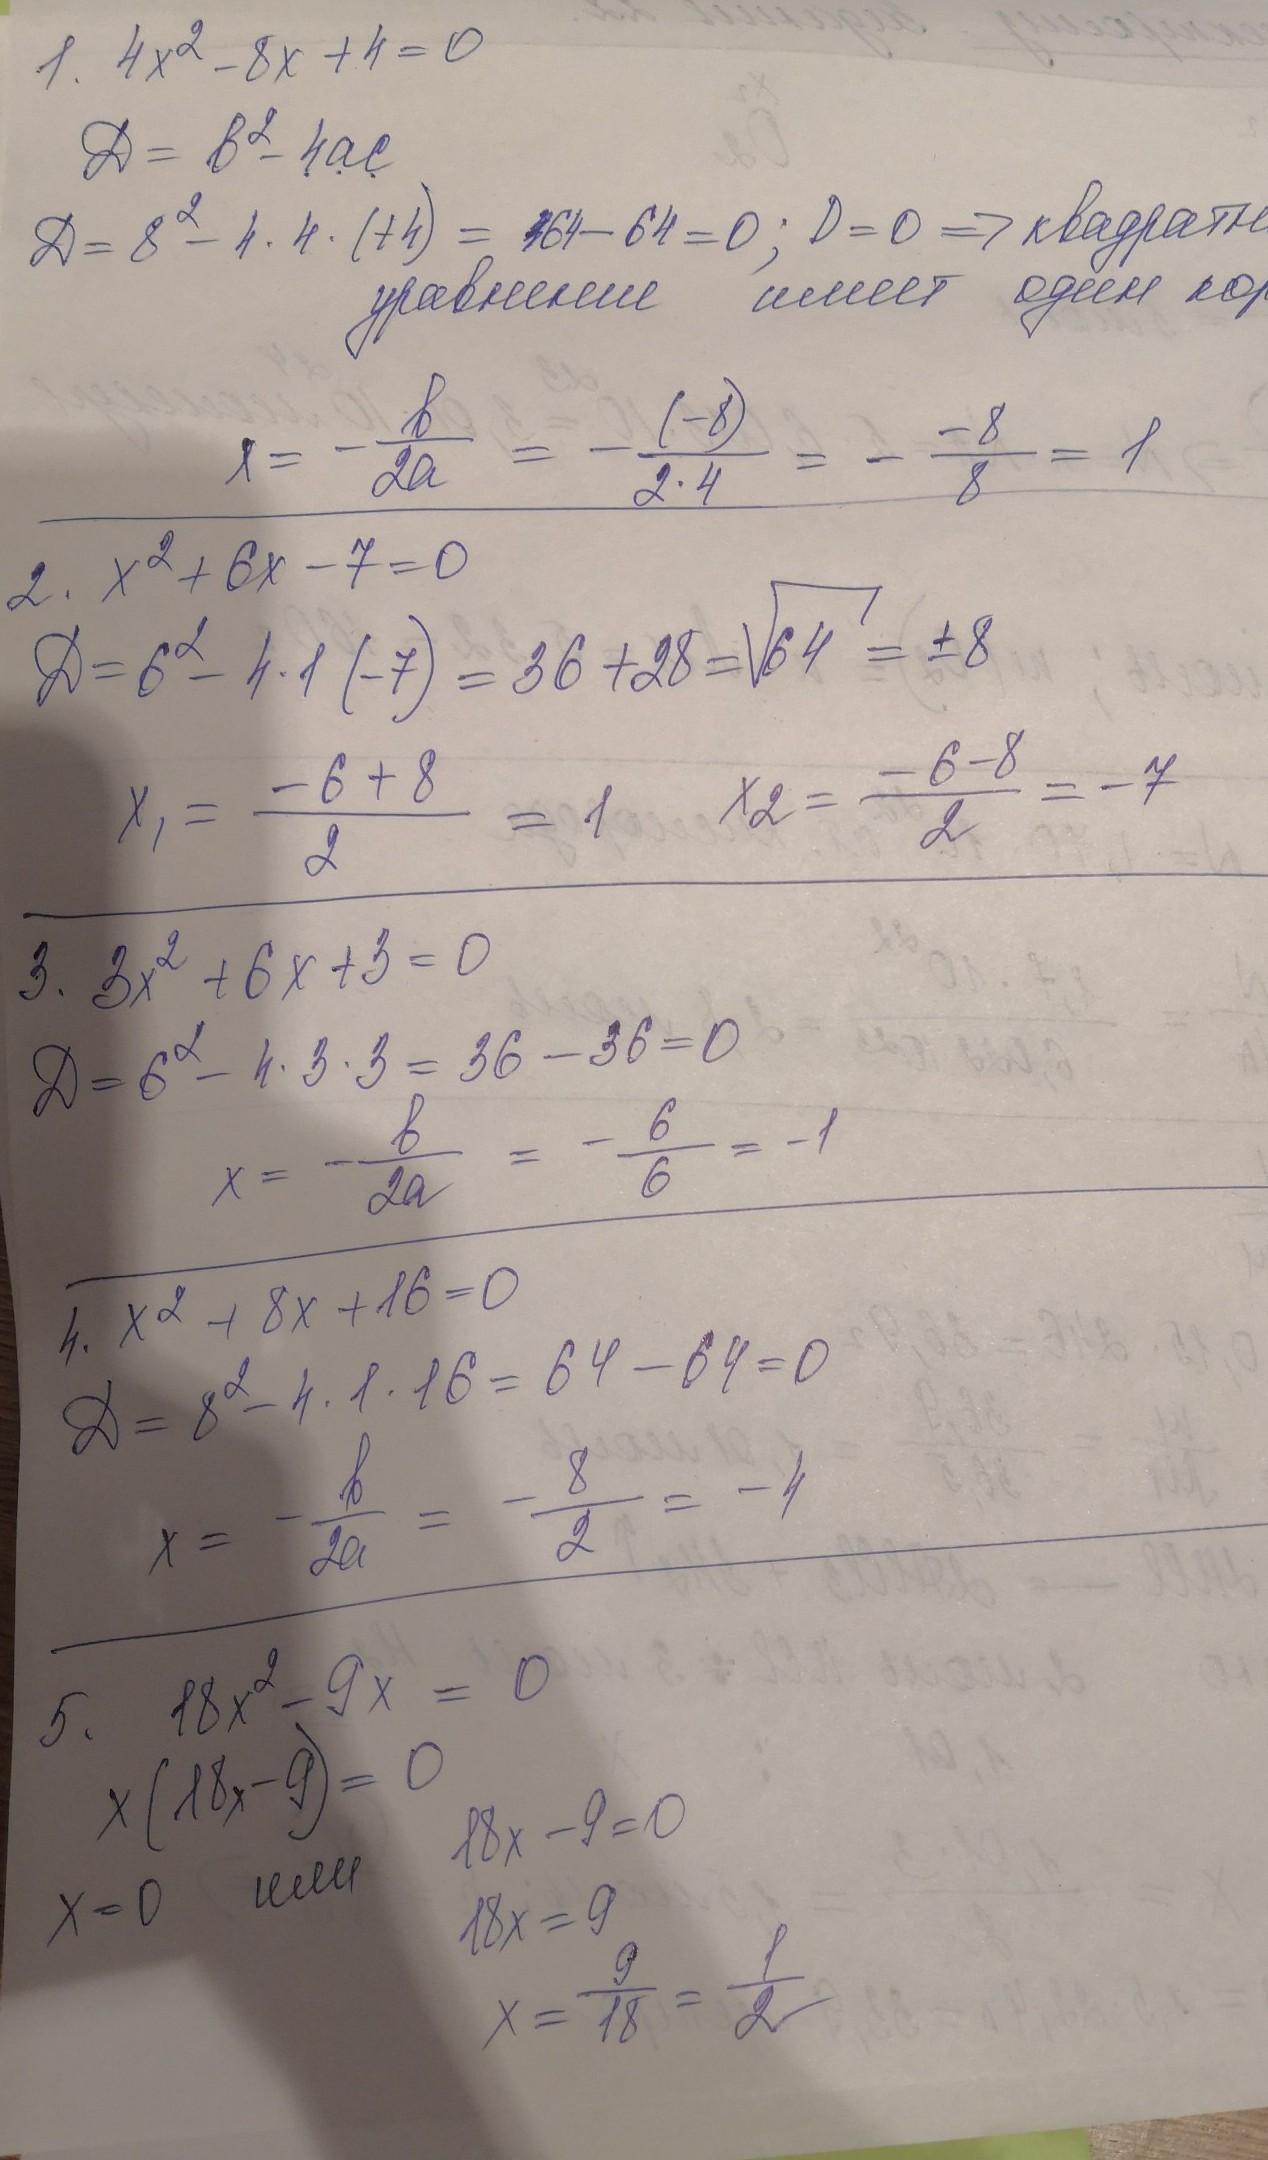 1. 4x² - 8x + 4 = 0
Д = b² - 4ac
Д = 8² - 4 · 4 · (+4) = 64 - 64 = 0; D = 0 => квадратн
уравнение имеет один кор
x = - b/2a = - (-8)/2·4 = - -8/8 = 1
2. x² + 6x - 7 = 0
Д = 6² - 4 · 1 (-7) = 36 + 28 = √64 = ±8
x₁ = -6+8/2 = 1 x₂ = -6-8/2 = -7
3. 3x² + 6x + 3 = 0
Д = 6² - 4 · 3 · 3 = 36 - 36 = 0
x = - b/2a = - 6/6 = -1
4. x² + 8x + 16 = 0
Д = 8² - 4 · 1 · 16 = 64 - 64 = 0
x = - b/2a = - 8/2 = -4
5. 18x² - 9x = 0
x(18x - 9) = 0
x = 0 или 18x - 9 = 0
18x = 9
x = 9/18 = 1/2